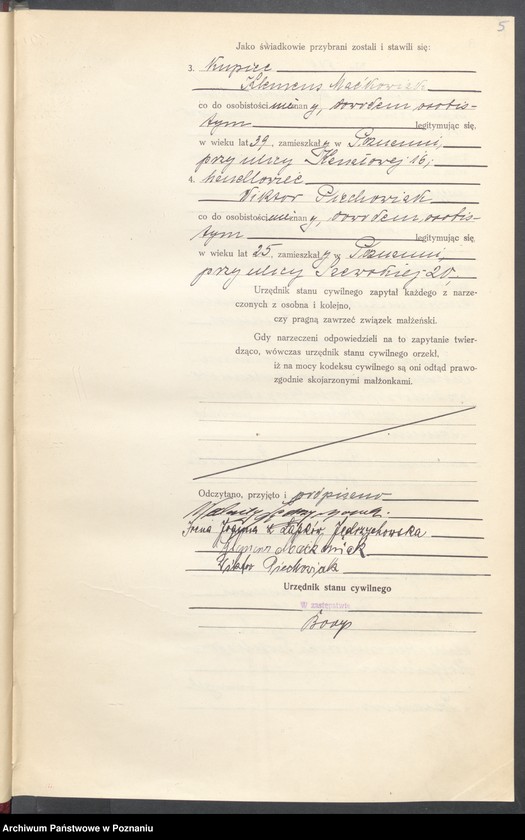 5
Jako świadkowie przybrani zostali i stawili się:
3. kupiec
Klemens Maćkowiak
co do osobistości mienany, dowodem osobis-
tym legitymując się,
w wieku lat 39, zamieszkały w Poznaniu,
przy ulicy 16,
4. handlowiec
Wiktor Piechowiak
co do osobistości mienany, dowodem osobis-
tym legitymując się,
w wieku lat 25, zamieszkały w Poznaniu,
przy ulicy Szewskiej 20,
Urzędnik stanu cywilnego zapytał każdego z narze-
czonych z osobna i kolejno,
czy pragną zawrzeć związek małżeński.
Gdy narzeczeni odpowiedzieli na to zapytanie twier-
dząco, wówczas urzędnik stanu cywilnego orzekł,
iż na mocy kodeksu cywilnego są oni odtąd prawo-
zgodnie skojarzonymi małżonkami.
Odczytano, przyjęto i podpisano
Irena z Jędrzychowska
Klemens Maćkowiak
Wiktor Piechowiak
Urzędnik stanu cywilnego
W zastępstwie
Archiwum Państwowe w Poznaniu